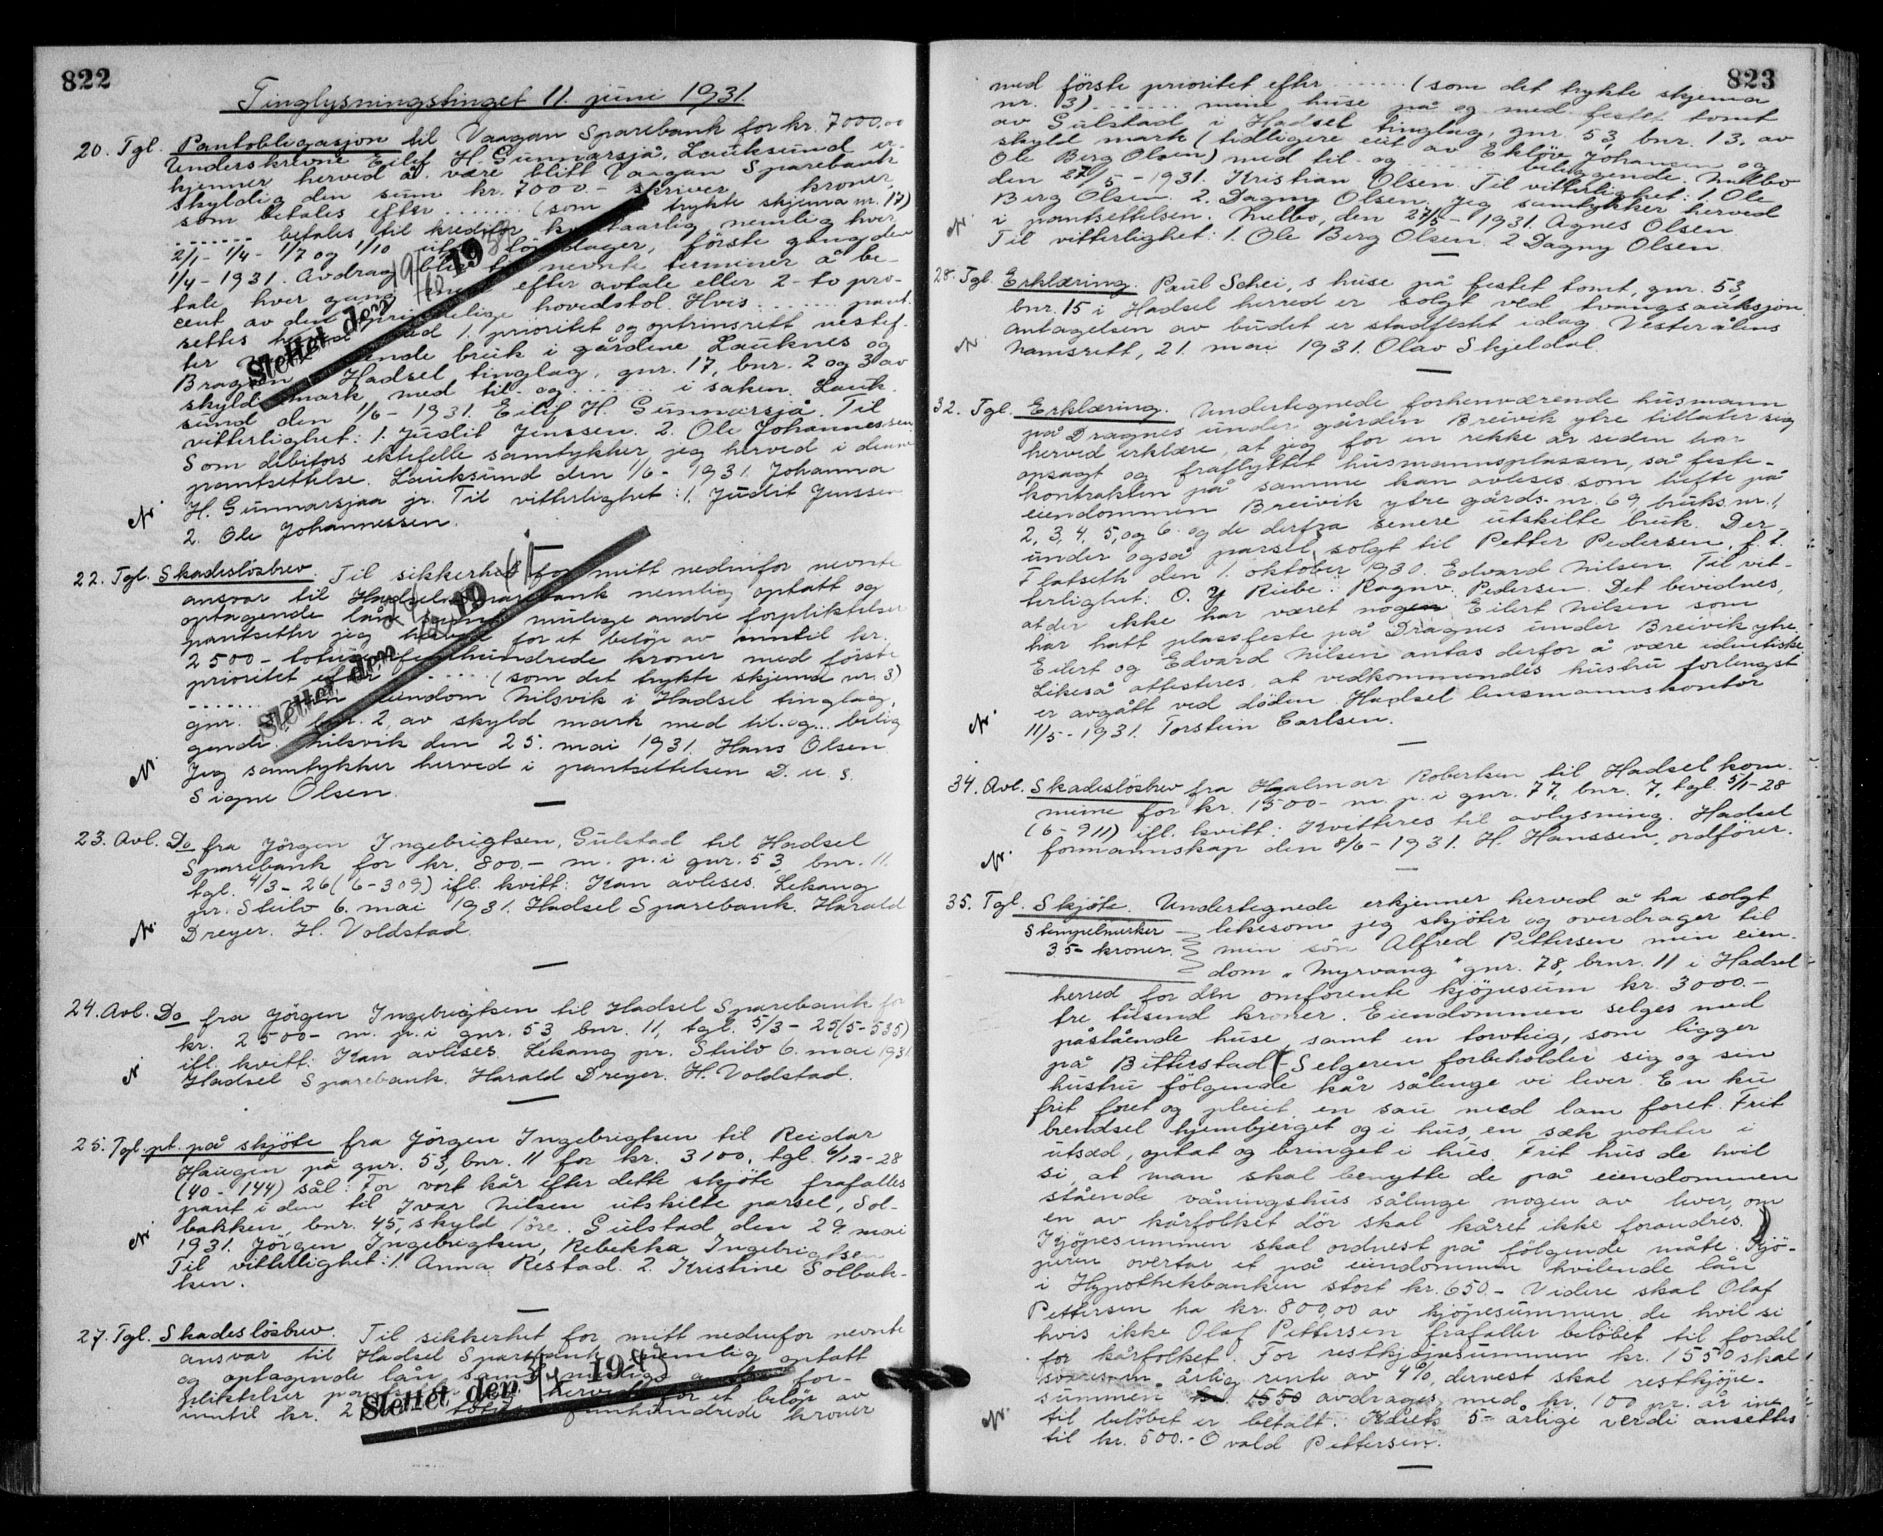 822
Tinglysningstinget 11. juni 1931.
20. Tgl. Pantobligasjon til Vaagan Sparebank for kr. 7000,00
Underskrevne Eilif H. Gunnarsjå, Lauksund er-
kjenner herved å være blitt Vaagan Sparebank
skyldig den sum kr. 7000.- skriver kroner,
som betales efter ........ (som trykte skjema nr. 17)
........ betales til kreditor kvartaarlig nemlig hver
2/1- 1/4- 1/7 og 1/10 första gang den
1/4-1931. Avdrag nevnte terminer å be-
tale hver gang efter avtale eller 2-to pro-
cent av den hovedstol. Hvis ........ pant-
settes 1. prioritet og optrinsrett nestef-
ter bruk i gårdene Lauknes og
Hadsel tinglag, gnr. 17, bnr. 2 og 3 av
skyld mark med til- og ........ i saken. Lauk-
sund den 1/6-1931. Eilif H. Gunnarsjå. Til
vitterlighet: 1. Judit Jenssen. 2. Ole Johannessen
Som debitors ektefelle samtykker jeg herved i denne
pantsettelse. Lauksund den 1/6-1931. Johanna
H. Gunnarsjaa jr. Til vitterlighet: 1. Judit Jenssen
2. Ole Johannessen.
Slettet den 19
22. Tgl. Skadeslösbrev. Til sikkerhet for mitt nedenfor nevnte
ansvar til Hadsel Sparebank nemlig optatt og
optagende lån mulige andre forpliktelser
pantsetter jeg herved for et belöp av inntil kr.
2500- totusenfemhundrede kroner med förste
prioritet efter ........ (som det trykte skjema nr. 3)
........ eiendom Nilsvik i Hadsel tinglag,
gnr. bnr. 2 av skyld mark med til- og... belig-
gende. Nilsvik den 25. mai 1931. Hans Olsen
Jeg samtykker herved i pantsettelsen D. u. s.
Signe Olsen.
Slettet den 19
23. Avl. Do fra Jörgen Ingebrigtsen, Gulstad til Hadsel
Sparebank for kr. 800.- m. p. i gnr. 53, bnr. 11.
tgl. 4/3-26 (6-309) ifl. kvitt: Kan avleses. Lekang
pr. Stilo 6. mai 1931. Hadsel Sparebank. Harald
Dreyer. H. Voldstad.
24. Avl. Do fra Jörgen Ingebrigtsen til Hadsel Sparebank for
kr. 2500- m. p. i gnr. 53, bnr. 11, tgl. 5/3-25 (5-535)
ifl. kvitt. Kan avleses. Lekang pr. Stilo 6. mai 1931
Hadsel Sparebank. Harald Dreyer. H. Voldstad.
25. Tgl. pt. på skjöte fra Jörgen Ingebrigtsen til Reidar
Haugen på gnr. 53, bnr. 11 for kr. 3100, tgl. 6/12-28
(40-144) sål: For vort kår efter dette skjöte frafalles
pant i den til Ivar Nilsen utskilte parsel, Sol-
bakken bnr. 45, skyld 1 öre. Gulstad, den 29 mai
1931. Jörgen Ingebrigtsen, Rebekka Ingebrigtsen
Til vitterlighet: 1. Anna Restad. 2. Kristine Solbak-
ken.
27. Tgl. Skadeslösbrev. Til sikkerhet for mitt nedenfor nevnte
ansvar til Hadsel Sparebank nemlig optatt
og optagende lån for-
pliktelser herved for et belöp av
inntil kr. 2 femhundrede kroner
Slettet den 19
823
med förste prioritet efter ........ (som det trykte skjema
nr. 3) ........ mine huse på og med festet tomt
av Gulstad i Hadsel tinglag, gnr. 53, bnr. 13, av
skyld mark (tidligere eiet av Eklöv Johansen og
Ole Berg Olsen) med til- og ........ beliggende. Melbo
den 27/5-1931. Kristian Olsen. Til vitterlighet: 1. Ole
Berg Olsen. 2. Dagny Olsen. Jeg samtykker herved
i pantsettelsen. Melbo, den 27/5-1931. Agnes Olsen
Til vitterlighet: 1. Ole Berg Olsen. 2 Dagny Olsen.
28. Tgl. Erklæring. Paul Schei, s huse på festet tomt, gnr. 53,
bnr. 15 i Hadsel herred er solgt ved tvangsauksjon
antagelsen av budet er stadfestet idag. Vesterålens
namsrett, 21. mai 1931. Olav Skjeldal
32. Tgl. Erklæring. Undertegnede forhenværende husmann
på Dragnes under gården Breivik ytre tillater sig
herved erklære, at jeg for en rekke år siden har
opsagt og fraflyttet husmannsplassen, så feste-
kontrakten på samme kan avleses som hefte på
eiendommen Breivik ytre gårds-nr. 69, bruks.nr. 1,
2, 3, 4, 5, og 6. og de derfra senere utskilte bruk. Der-
under også parsel solgt til Petter Pedersen, f.t.
Flatseth den 1. oktober 1930. Edvard Nilsen. Til vit-
terlighet: O. Y Riibe. Ragnv. Pedersen. Det bevidnes,
at der ikke har været nogen Eilert Nilsen som
har hatt plassfeste på Dragnes under Breivik ytre.
Eilert og Edvard Nilsen antas derfor å være identiske
Likeså attesteres, at vedkommendes hustru forlengst
er avgått ved döden. Hadsel lensmannskontor
11/5-1931. Torstein Carlsen.
34. Avl. Skadeslösbrev fra Hjalmar Robertsen til Hadsel kom-
mune for kr. 1500- m. p. i gnr. 77, bnr. 7, tgl. 5/1-28
(6-911) ifl. kvitt: Kvitteres til avlysning. Hadsel
formannskap den 8/6-1931. H. Hanssen, ordförer.
35. Tgl. Skjöte. Undertegnede erkjenner herved å ha solgt
Stempelmerker 35- kroner.
likesom jeg skjöter og overdrager til
min sön Alfred Pettersen min eien-
dom "Myrvang" gnr. 78, brnr. 11 i Hadsel
herred for den omforente kjöpesum kr. 3000.-
tre tusend kroner. Eiendommen selges med
påstående huse, samt en torvteig, som ligger
på Bitterstad (- Selgeren forbeholder sig og sin
hustru fölgende kår sålenge vi lever. En ku
frit foret og pleiet, en sau med lam foret. Frit
brendsel hjembjerget og i hus, en sæk poteter i
utsæd, optat og bringet i hus. Frit hus de hvil
si, at man skal benytte de på eiendommen
stående våningshus sålenge nogen av lever, om
en av kårfolket dör skal kåret ikke forandres.)
Kjöpesummen skal ordnest på fölgende måte. Kjö-
peren overtar et på eiendommen hvilende lån
i Hypothekbanken stort kr. 650.- Videre skal Olaf
Pettersen ha kr. 800,00 av kjöpesummen de hvil si
hvis ikke Olaf Pettersen frafaller belöbet til fordel
for kårfolket. For restkjöpesummen kr. 1550 skal
svares en årlig rente av 4%, dernest skal restkjöpe-
summen kr. 1550 avdrages med kr. 100 pr. år inn-
til belöbet er betalt. Kårets 5- årlige verdi ansettes
til kr. 500.- Ovald Pettersen.